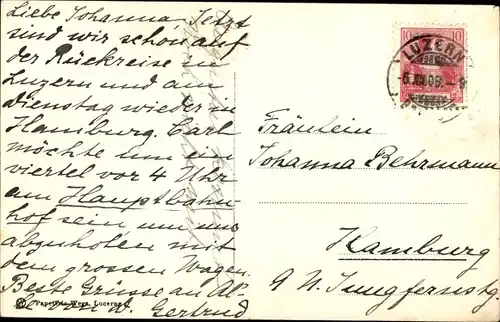 Liebe Johanna, Jetzt
sind wir schon auf
der Rückreise in
Luzern und am
Dienstag wieder in
Hamburg. Carl
möchte um ein
viertel vor 4 Uhr
am Hauptbahn-
hof sein, um uns
abzuholen mit
dem grossen Wagen.
Beste Grüsse an
von Gertrud
10 10
LUZERN
Fräulein
Johanna Behrmann
Hamburg
9 N. Jungfernstg
Papeterie Wega, Lucerne